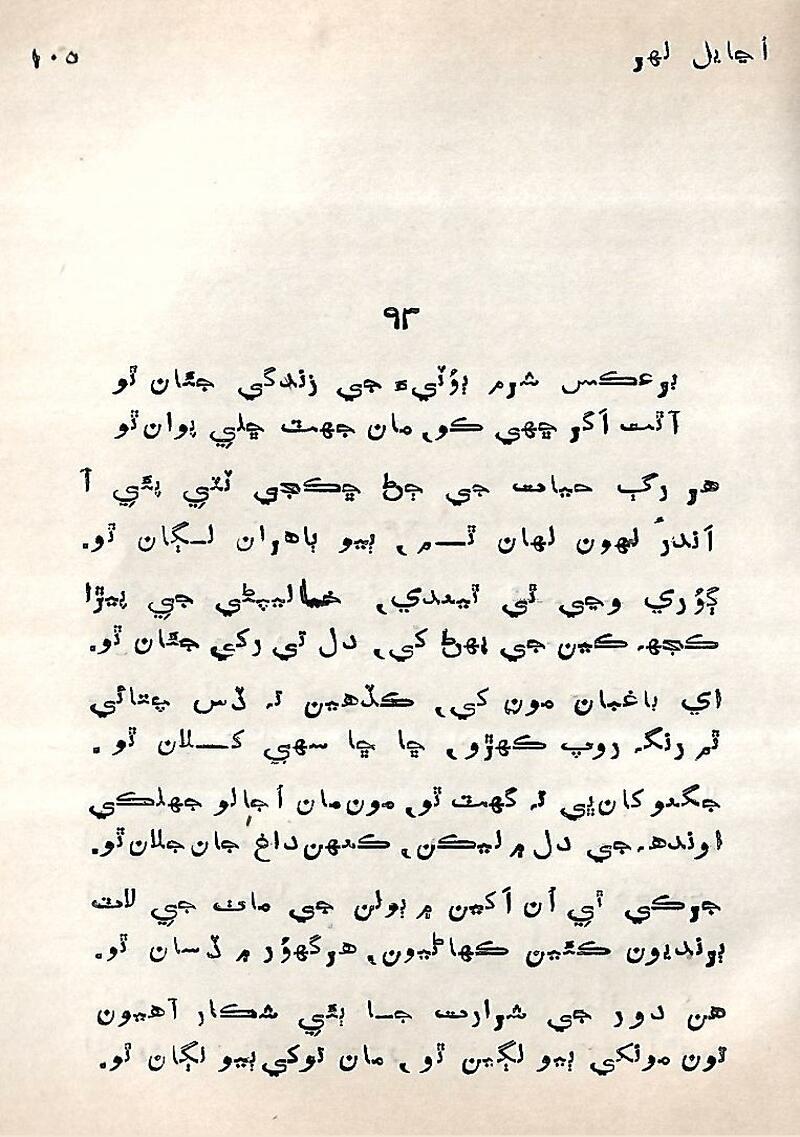 اڃايل لهر
١٠٥
٩٣
برعڪس شرم ٻوُٽيءَ جي زندگي جٿان ٿو
آئت اگر ڇهي ڪو، مان جهٽ ڇلي پوان ٿو
هر رڳ حيات جي ڄڻ ڇڪجي ٽٽي پئي آ
اندرُ لهون لهان ٿــم، ٻيو ٻاهران لــڳان ٿو.
ڳوُري وڃي ٿي ٿيندي، خماليپڻي جي پيڙا
ڪجهہ ڪين جي ٻهڻ کي، دل تي رکي جٿان ٿو.
اي باغبان مون کي، ڪڏهين تہ ڏس چتائي
ٿم رنگہ روپ ڪهڙو، ڇا ڇا سهي کــلان ٿو.
جڳنو کان ڀي تہ گهٽ ٿو، مون مان اُجالو جهلڪي
اوندهہ جي دل ۾ ليڪن، ڪنهن داغ جان جلان ٿو.
جرڪي ٿي اُن اکين ۾ ٻولن جي مات جي لاٽ
برنديون ڪٿين ڪهاڻيون، هر گهوُر ۾ ڏسان ٿو.
هن دور جي شرارت جــا ٻئي شڪار آهيون
تون مونکي ٻيو لڳين ٿو، مان توکي ٻيو لڳان ٿو.